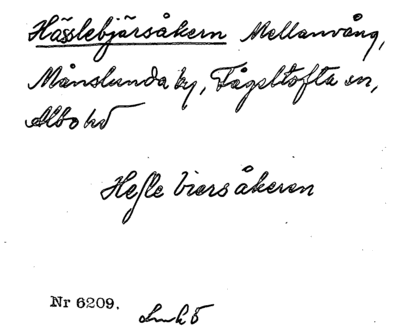 Hässlebjärsåkern Mellanvång,
Månslunda by, Fågeltofta sn,
Albo hd
Hesle biers åkeren
Nr 6209. LmhÖ